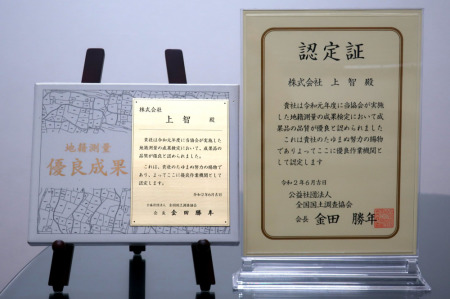 地籍測量
優良成果
株式会社
上智 殿
貴社は令和元年度に当協会が実施し
た地籍測量の成果検定において、成果品の
品質が優良と認められました。
これは、貴社のたゆまぬ努力の賜物で
あり、よってここに優良作業機関として
認定します。
令和2年6月吉日
公益社団法人 全国国土調査協会
会長 金田勝年
認定証
株式会社 上智 殿
貴社は令和元年度に当協会が実施
した地籍測量の成果検定において成
果品の品質が優良と認められました
これは貴社のたゆまぬ努力の賜物
でありよってここに優良作業機関と
して認定します
令和2年6月吉日
公益社団法人
全国国土調査協会
会長 金田勝年